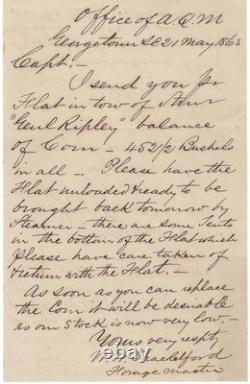 Office of A.Q.M
Georgetown SC 21 May 1863
Capt:-
I send you pr
Flat in tow of Stmr
"Genl Ripley" balance
of Corn - 452 1/2 Bushels
in all - Please have the
Flat unloaded ready, to be
brought back tomorrow by
Steamer - there are some Tents
in the bottom of the Flat which
Please have care taken of
return with the Flat.-
As soon as you can replace
the Corn it will be desirable
as our Stock is now very low.-
Yours very respty
W. H. Shackelford
Forage master